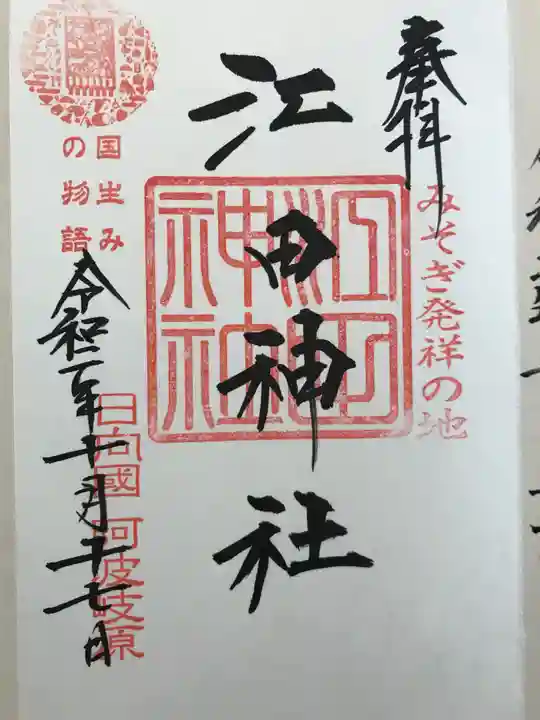 奉拝
みそぎ発祥の地
江田神社
江田神社
国生み
の物語
令和二年十月二十七日
日向國 阿波岐原